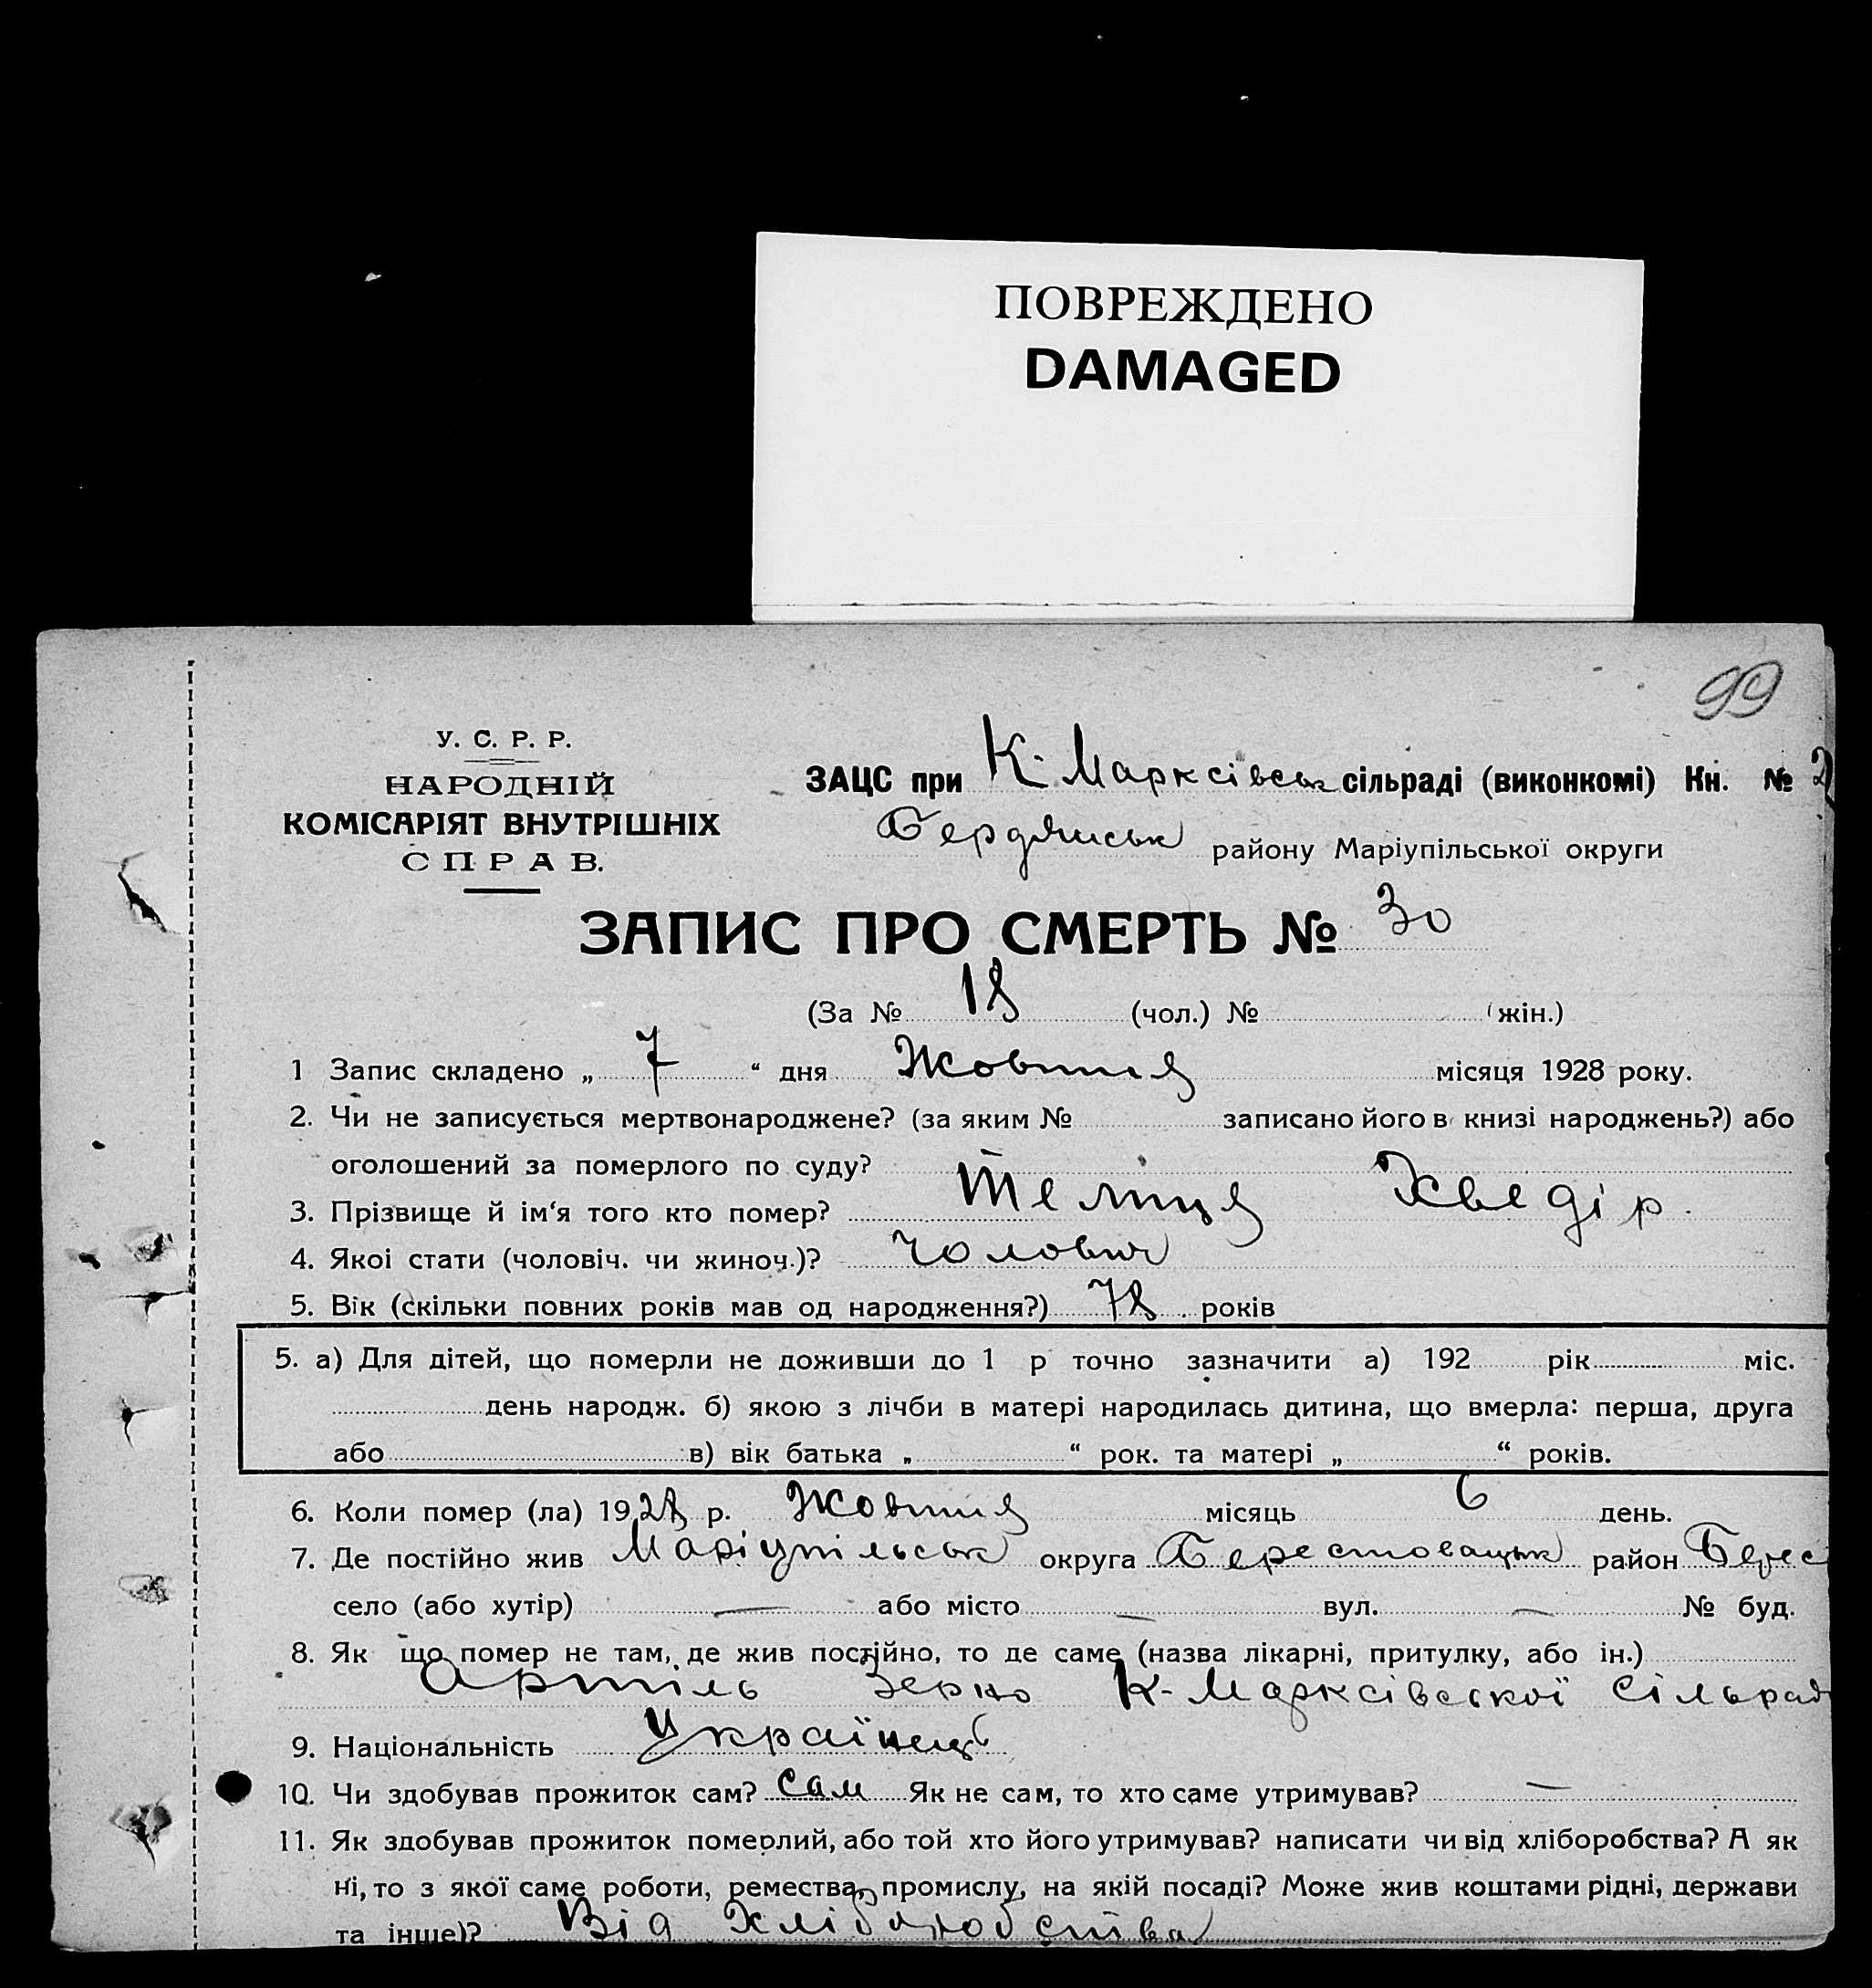 ПОВРЕЖДЕНО
DAMAGED
99
У. С. Р. Р.
НАРОДНІЙ
КОМІСАРІЯТ ВНУТРІШНІХ
СПРАВ.
ЗАЦС при К-Марксівськ сільраді (виконкомі) Кн. № 2
Бердянськ району Маріупільської округи
ЗАПИС ПРО СМЕРТЬ № 30
(За № 18 (чол.) № (жін.)
1 Запис складено „ 7 “ дня Жовтня місяця 1928 року.
2. Чи не записується мертвонароджене? (за яким № записано його в книзі народжень?) або
оголошений за померлого по суду?
3. Прізвище й ім‘я того кто помер? Телиця Хведір.
4. Якоі стати (чоловіч. чи жиноч.)? чоловіч
5. Вік (скільки повних років мав од народження?) 78 років
5. а) Для дітей, що померли не доживши до 1 р точно зазначити а) 192 рік міс.
день народж. б) якою з лічби в матері народилась дитина, що вмерла: перша, друга
або в) вік батька „ “ рок. та матері „ “ років.
6. Коли помер (ла) 1928 р. Жовтня місяць 6 день.
7. Де постійно жив Маріупільськ округа Берестовацьк район Берес
село (або хутір) — або місто — вул. — № буд.
8. Як що помер не там, де жив постійно, то де саме (назва лікарні, притулку, або ін.)
Артіль Зерно К-Марксівської Сільрад
9. Національність Українець
10. Чи здобував прожиток сам? Сам Як не сам, то хто саме утримував? —
11. Як здобував прожиток померлий, або той хто його утримував? написати чи від хліборобства? А як
ні, то з якої саме роботи, ремества, промислу, на якій посаді? Може жив коштами рідні, держави
та інше)? Від Хліборобства